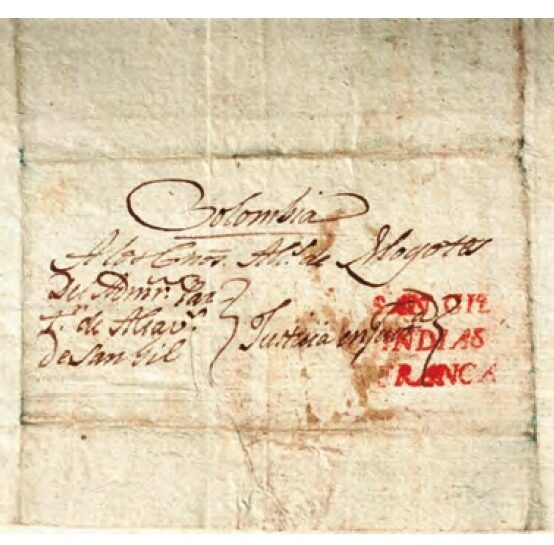 Colombia
A los Cnos. Al.s de Mogotes
Del Admr. Par
T.r de Alcav.s
de San Gil
Justicia en Junt
SAN GIL
INDIAS
FRANCA